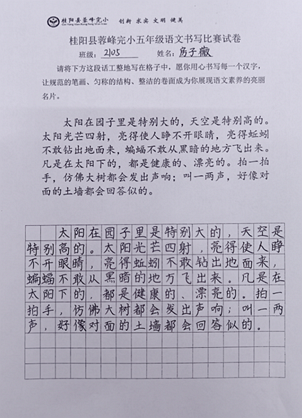 桂阳县蓉峰完小 创新 求实 文明 健美
桂阳县蓉峰完小五年级语文书写比赛试卷
班级：2105 姓名：房子薇
请将下方这段话工整地写在格子中，愿你用心书写每一个汉字，
让规范的笔画、匀称的结构、整洁的卷面成为你展现语文素养的亮丽
名片。
太阳在园子里是特别大的，天空是特别高的。
太阳光芒四射，亮得使人睁不开眼睛，亮得蚯蚓
不敢钻出地面来，蝙蝠不敢从黑暗的地方飞出来。
凡是在太阳下的，都是健康的、漂亮的。拍一拍
手，仿佛大树都会发出声响；叫一两声，好像对
面的土墙都会回答似的。
太阳在园子里是特别大的，天空是
特别高的。太阳光芒四射，亮得使人睁
不开眼睛，亮得蚯蚓不敢钻出地面来，
蝙蝠不敢从黑暗的地方飞出来。凡是在
太阳下的，都是健康的、漂亮的。拍一
拍手，仿佛大树都会发出声响；叫一两
声，好像对面的土墙都会回答似的。